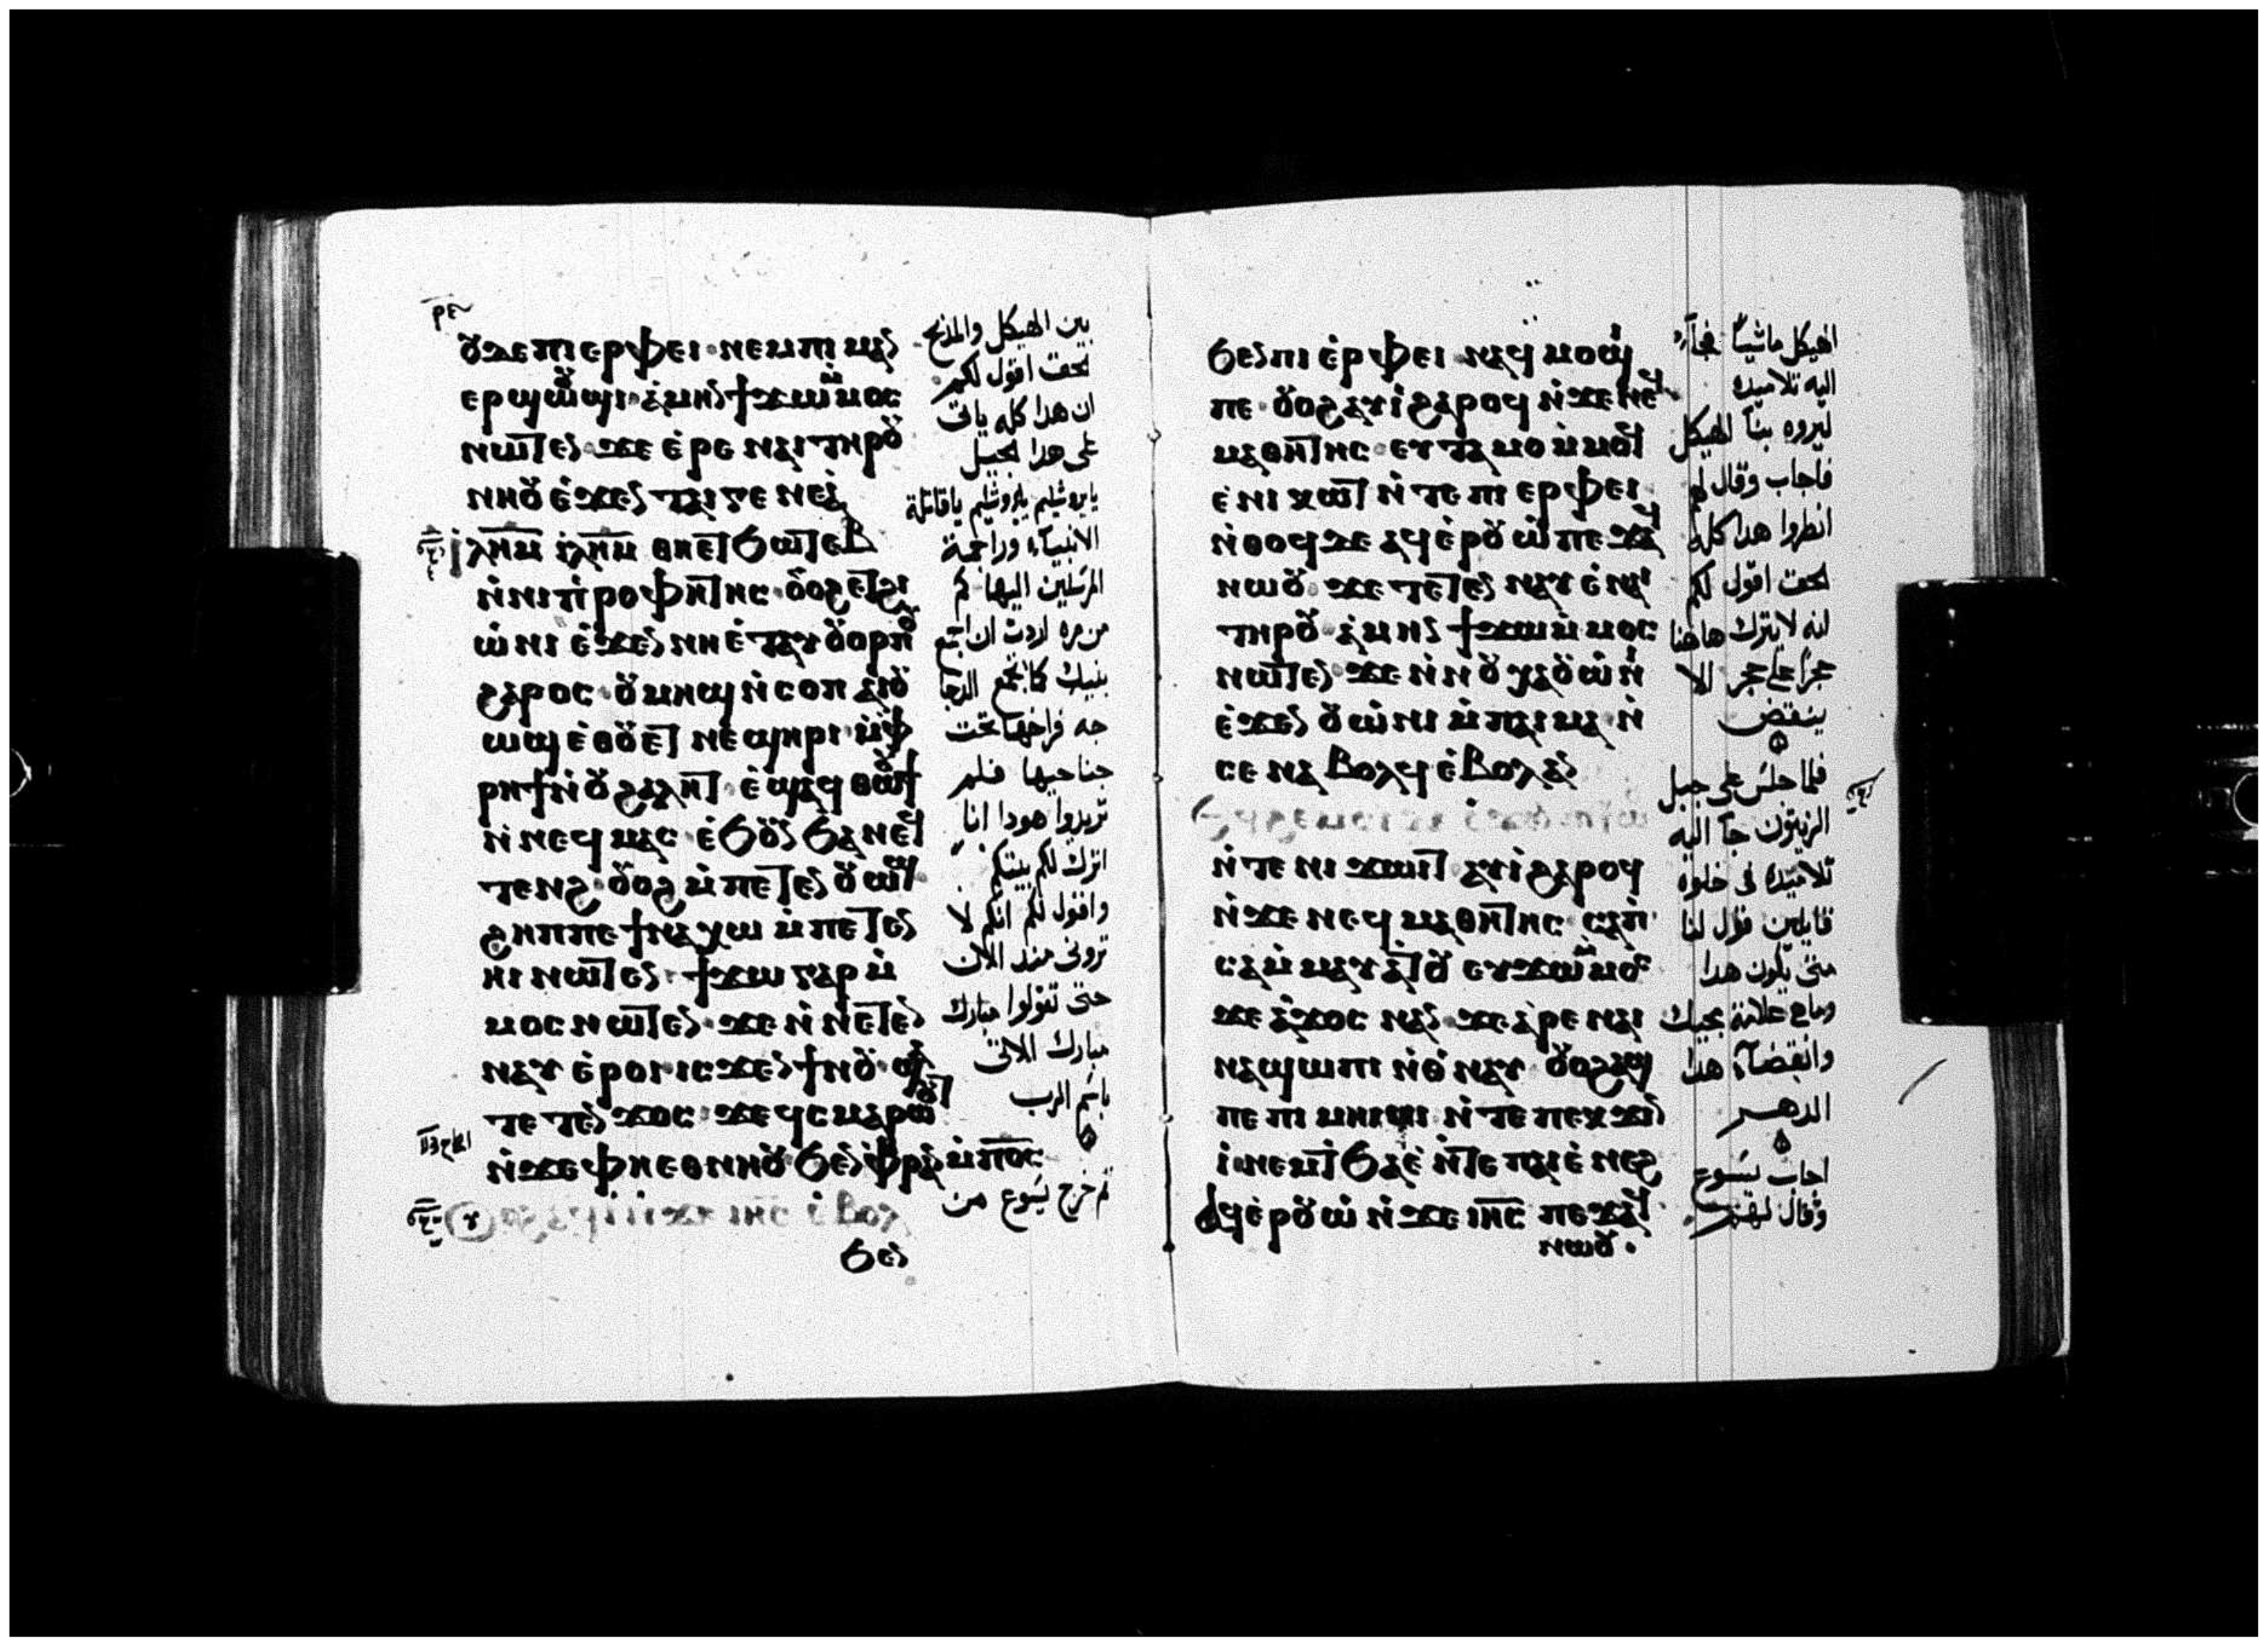 ⲟⲩⲧⲉ ⲡⲓⲉⲣⲫⲉⲓ ⲛⲉⲙ ⲡⲓⲙⲁⲛ
ⲉⲣϣⲱⲟⲩϣⲓ ⲁⲙⲏⲛ ϯϫⲱ ⲙⲙⲟⲥ
ⲛⲱⲧⲉⲛ ϫⲉ ⲉⲣⲉ ⲛⲁⲓ ⲧⲏⲣⲟⲩ
ⲛⲏⲟⲩ ⲉϫⲉⲛ ⲧⲁⲓⲅⲉⲛⲉⲁ
ⲓⲗⲏⲙ ⲓⲗⲏⲙ ⲑⲏⲉⲧϧⲱⲧⲉⲃ
ⲛⲛⲓⲡⲣⲟⲫⲏⲧⲏⲥ ⲟⲩⲟϩ ⲉⲧϩⲓ
ⲱⲛⲓ ⲉϫⲉⲛ ⲛⲏⲉⲧⲁⲩⲟⲩⲟⲣⲡⲟⲩ
ϩⲁⲣⲟⲥ ⲟⲩⲙⲏϣ ⲛⲥⲟⲡ ⲁⲓⲟⲩ
ⲱϣ ⲉⲑⲟⲩⲉⲧ ⲛⲉϣⲏⲣⲓ ⲙⲫ
ⲣⲏϯ ⲛⲟⲩϩⲁⲗⲏⲧ ⲉϣⲁϥⲑⲱⲟⲩϯ
ⲛⲛⲉϥⲙⲁⲥ ⲉϧⲟⲩⲛ ϧⲁ ⲛⲉϥ
ⲧⲉⲛϩ ⲟⲩⲟϩ ⲙⲡⲉⲧⲉⲛⲟⲩⲱϣ
ϩⲏⲡⲡⲉ ϯⲛⲁⲭⲱ ⲙⲡⲉⲧⲉⲛ
ⲏⲓ ⲛⲱⲧⲉⲛ ϯϫⲱ ⲅⲁⲣ ⲙ
ⲙⲟⲥ ⲛⲱⲧⲉⲛ ϫⲉ ⲛⲛⲉⲧⲉⲛ
ⲛⲁⲩ ⲉⲣⲟⲓ ⲓⲥϫⲉⲛ ϯⲛⲟⲩ ϣⲁ
ⲧⲉⲧⲉⲛϫⲟⲥ ϫⲉ ϥⲥⲙⲁⲣⲱⲟⲩⲧ
ⲛϫⲉ ⲫⲏⲉⲑⲛⲏⲟⲩ ϧⲉⲛ ⲫⲣⲁⲛ ⲙⲡⲟⲥ
ϧⲉⲛ
بين الهيكل والمذبح
الحق اقول لكم
ان هدا كله ياتى
على هدا الجيل
يايروشليم يايروشليم ياقاتلة
الانبياء وراجمة
المرسلين اليها كم
من مره اردت ان اجمع
بنيك كما تجمع الدجا
جه فراخها تحت
جناحيها فلم
تريدوا هودا انا
اترك لكم بيتكم
واقول لكم انكم لا
ترونى مند الان
حتى تقولوا مبارك
مبارك الاتى
باسم الرب
ثم خرج يسوع من
ϧⲉⲛ ⲡⲓⲉⲣⲫⲉⲓ ⲛⲁϥⲙⲟϣⲓ
ⲡⲉ ⲟⲩⲟϩ ⲁⲩⲓ ϩⲁⲣⲟϥ ⲛϫⲉ ⲛⲉϥ
ⲙⲁⲑⲏⲧⲏⲥ ⲉⲩⲧⲁⲙⲟ ⲙⲙⲟϥ
ⲉⲛⲓⲕⲱⲧ ⲛⲧⲉ ⲡⲓⲉⲣⲫⲉⲓ
ⲛⲑⲟϥ ⲇⲉ ⲁϥⲉⲣⲟⲩⲱ ⲡⲉϫⲁϥ
ⲛⲱⲟⲩ ϫⲉ ⲧⲉⲧⲉⲛⲛⲁⲩ ⲉⲛⲁⲓ
ⲧⲏⲣⲟⲩ ⲁⲙⲏⲛ ϯϫⲱ ⲙⲙⲟⲥ
ⲛⲱⲧⲉⲛ ϫⲉ ⲛⲛⲟⲩⲭⲁⲟⲩⲱⲛⲓ
ⲉϫⲉⲛ ⲟⲩⲱⲛⲓ ⲙⲡⲁⲓⲙⲁ ⲛ
ⲥⲉⲛⲁⲃⲟⲗϥ ⲉⲃⲟⲗ ⲁⲛ
ⲛⲧⲉ ⲛⲓϫⲱⲓⲧ ⲁⲩⲓ ϩⲁⲣⲟϥ
ⲛϫⲉ ⲛⲉϥⲙⲁⲑⲏⲧⲏⲥ ⲥⲁⲡ
ⲥⲁ ⲙⲙⲁⲩⲁⲧⲟⲩ ⲉⲩϫⲱ ⲙⲙⲟⲥ
ϫⲉ ⲁϫⲟⲥ ⲛⲁⲛ ϫⲉ ⲁⲣⲉ ⲛⲁⲓ
ⲛⲁϣⲱⲡⲓ ⲛⲑⲛⲁⲩ ⲟⲩⲟϩ ⲁϣ
ⲡⲉ ⲡⲓⲙⲏⲓⲛⲓ ⲛⲧⲉ ⲡⲉⲕϫⲓⲛ
ⲓ ⲛⲉⲙ ⲧϧⲁⲉ ⲛⲧⲉ ⲡⲁⲓⲉⲛⲉϩ
ⲁϥⲉⲣⲟⲩⲱ ⲛϫⲉ ⲓⲏⲥ ⲡⲉϫⲁϥ
ⲛⲱⲟⲩ
الهيكل ماشياً فجاء
اليه تلاميده
ليروه بنا الهيكل
فاجاب وقال لهم
انظروا هدا كله
الحق اقول لكم
انه لا يترك هاهنا
حجراً على حجر الا
ينقض
فلما جلس على جبل
الزيتون جا اليه
تلاميده فى خلوه
قايلين قول لنا
متى يكون هدا
وما هى علامة مجيك
وانقضاء هدا
الدهر
اجاب يسوع
وقال لهم